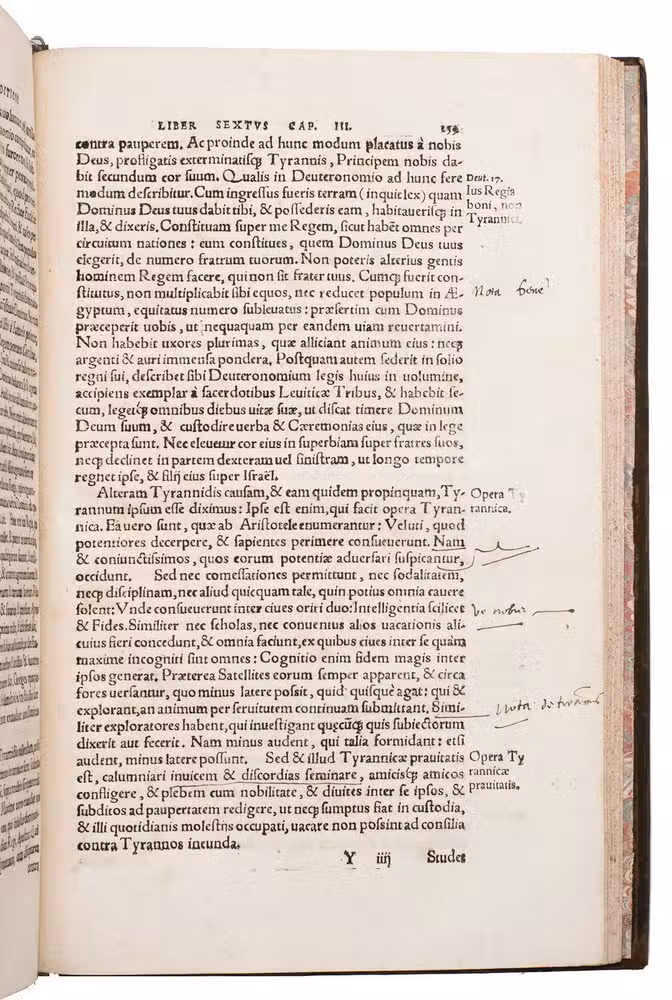 LIBER SEXTVS CAP. III. 259
contra pauperem. Ac proinde ad hunc modum placatus à nobis
Deus, profligatis exterminatisq́; Tyrannis, Principem nobis da-
bit secundum cor suum. Qualis in Deuteronomio ad hunc fere
modum describitur. Cum ingressus fueris terram (inquit lex) quam
Dominus Deus tuus dabit tibi, & possederis eam, habitauerisq́; in
illa, & dixeris. Constituam super me Regem, sicut habēt omnes per
circuitum nationes: eum constitues, quem Dominus Deus tuus
elegerit, de numero fratrum tuorum. Non poteris alterius gentis
hominem Regem facere, qui non sit frater tuus. Cumq́; fuerit con-
stitutus, non multiplicabit sibi equos, nec reducet populum in Æ-
gyptum, equitatus numero subleuatus: præsertim cum Dominus
præceperit uobis, ut nequaquam per eandem uiam reuertamini.
Non habebit uxores plurimas, quæ alliciant animum eius: neq́;
argenti & auri immensa pondera. Postquam autem sederit in solio
regni sui, describet sibi Deuteronomium legis huius in uolumine,
accipiens exemplar à sacerdotibus Leuiticæ Tribus, & habebit se-
cum, legetq́; omnibus diebus uitæ suæ, ut discat timere Dominum
Deum suum, & custodire uerba & Cæremonias eius, quæ in lege
præcepta sunt. Nec eleuetur cor eius in superbiam super fratres suos,
neq́; declinet in partem dexteram uel sinistram, ut longo tempore
regnet ipse, & filij eius super Israël.
Alteram Tyrannidis causam, & eam quidem propinquam, Ty-
rannum ipsum esse diximus: Ipse est enim, qui facit opera Tyran-
nica. Ea uero sunt, quæ ab Aristotele enumerantur: Veluti, quod
potentiores decerpere, & sapientes perimere consueuerunt. Nam
& coniunctissimos, quos eorum potentiæ aduersari suspicantur,
occidunt. Sed nec comessationes permittunt, nec sodalitatem,
neq́; disciplinam, nec aliud quicquam tale, quin potius omnia cauere
solent: Vnde consueuerunt inter ciues oriri duo: Intelligentia scilicet
& Fides. Similiter nec scholas, nec conuentus alios uacationis ali-
cuius fieri concedunt, & omnia faciunt, ex quibus ciues inter se quàm
maxime incogniti sint omnes: Cognitio enim fidem magis inter
ipsos generat. Præterea Satellites eorum semper apparent, & circa
fores uersantur, quo minus latere possit, quid quisque agat: qui &
explorant, an animum per seruitutem continuam submittant. Simi-
liter exploratores habent, qui inuestigant quęcūq́; quis subiectorum
dixerit aut fecerit. Nam minus audent, qui talia formidant: etsi
audent, minus latere possunt. Sed & illud Tyrannicæ prauitatis
est, calumniari inuicem & discordias seminare, amicisq́; amicos
confligere, & plebem cum nobilitate, & diuites inter se ipsos, &
subditos ad paupertatem redigere, ut neq́; sumptus fiat in custodia,
& illi quotidianis molestijs occupati, uacare non possint ad consilia
contra Tyrannos ineunda.
Y iiij Studet
Deut. 17.
Ius Regis
boni, non
Tyranni.
Nota bene
Opera Ty
rannica.
Nota
Opera Ty
rannicæ
prauitatis.